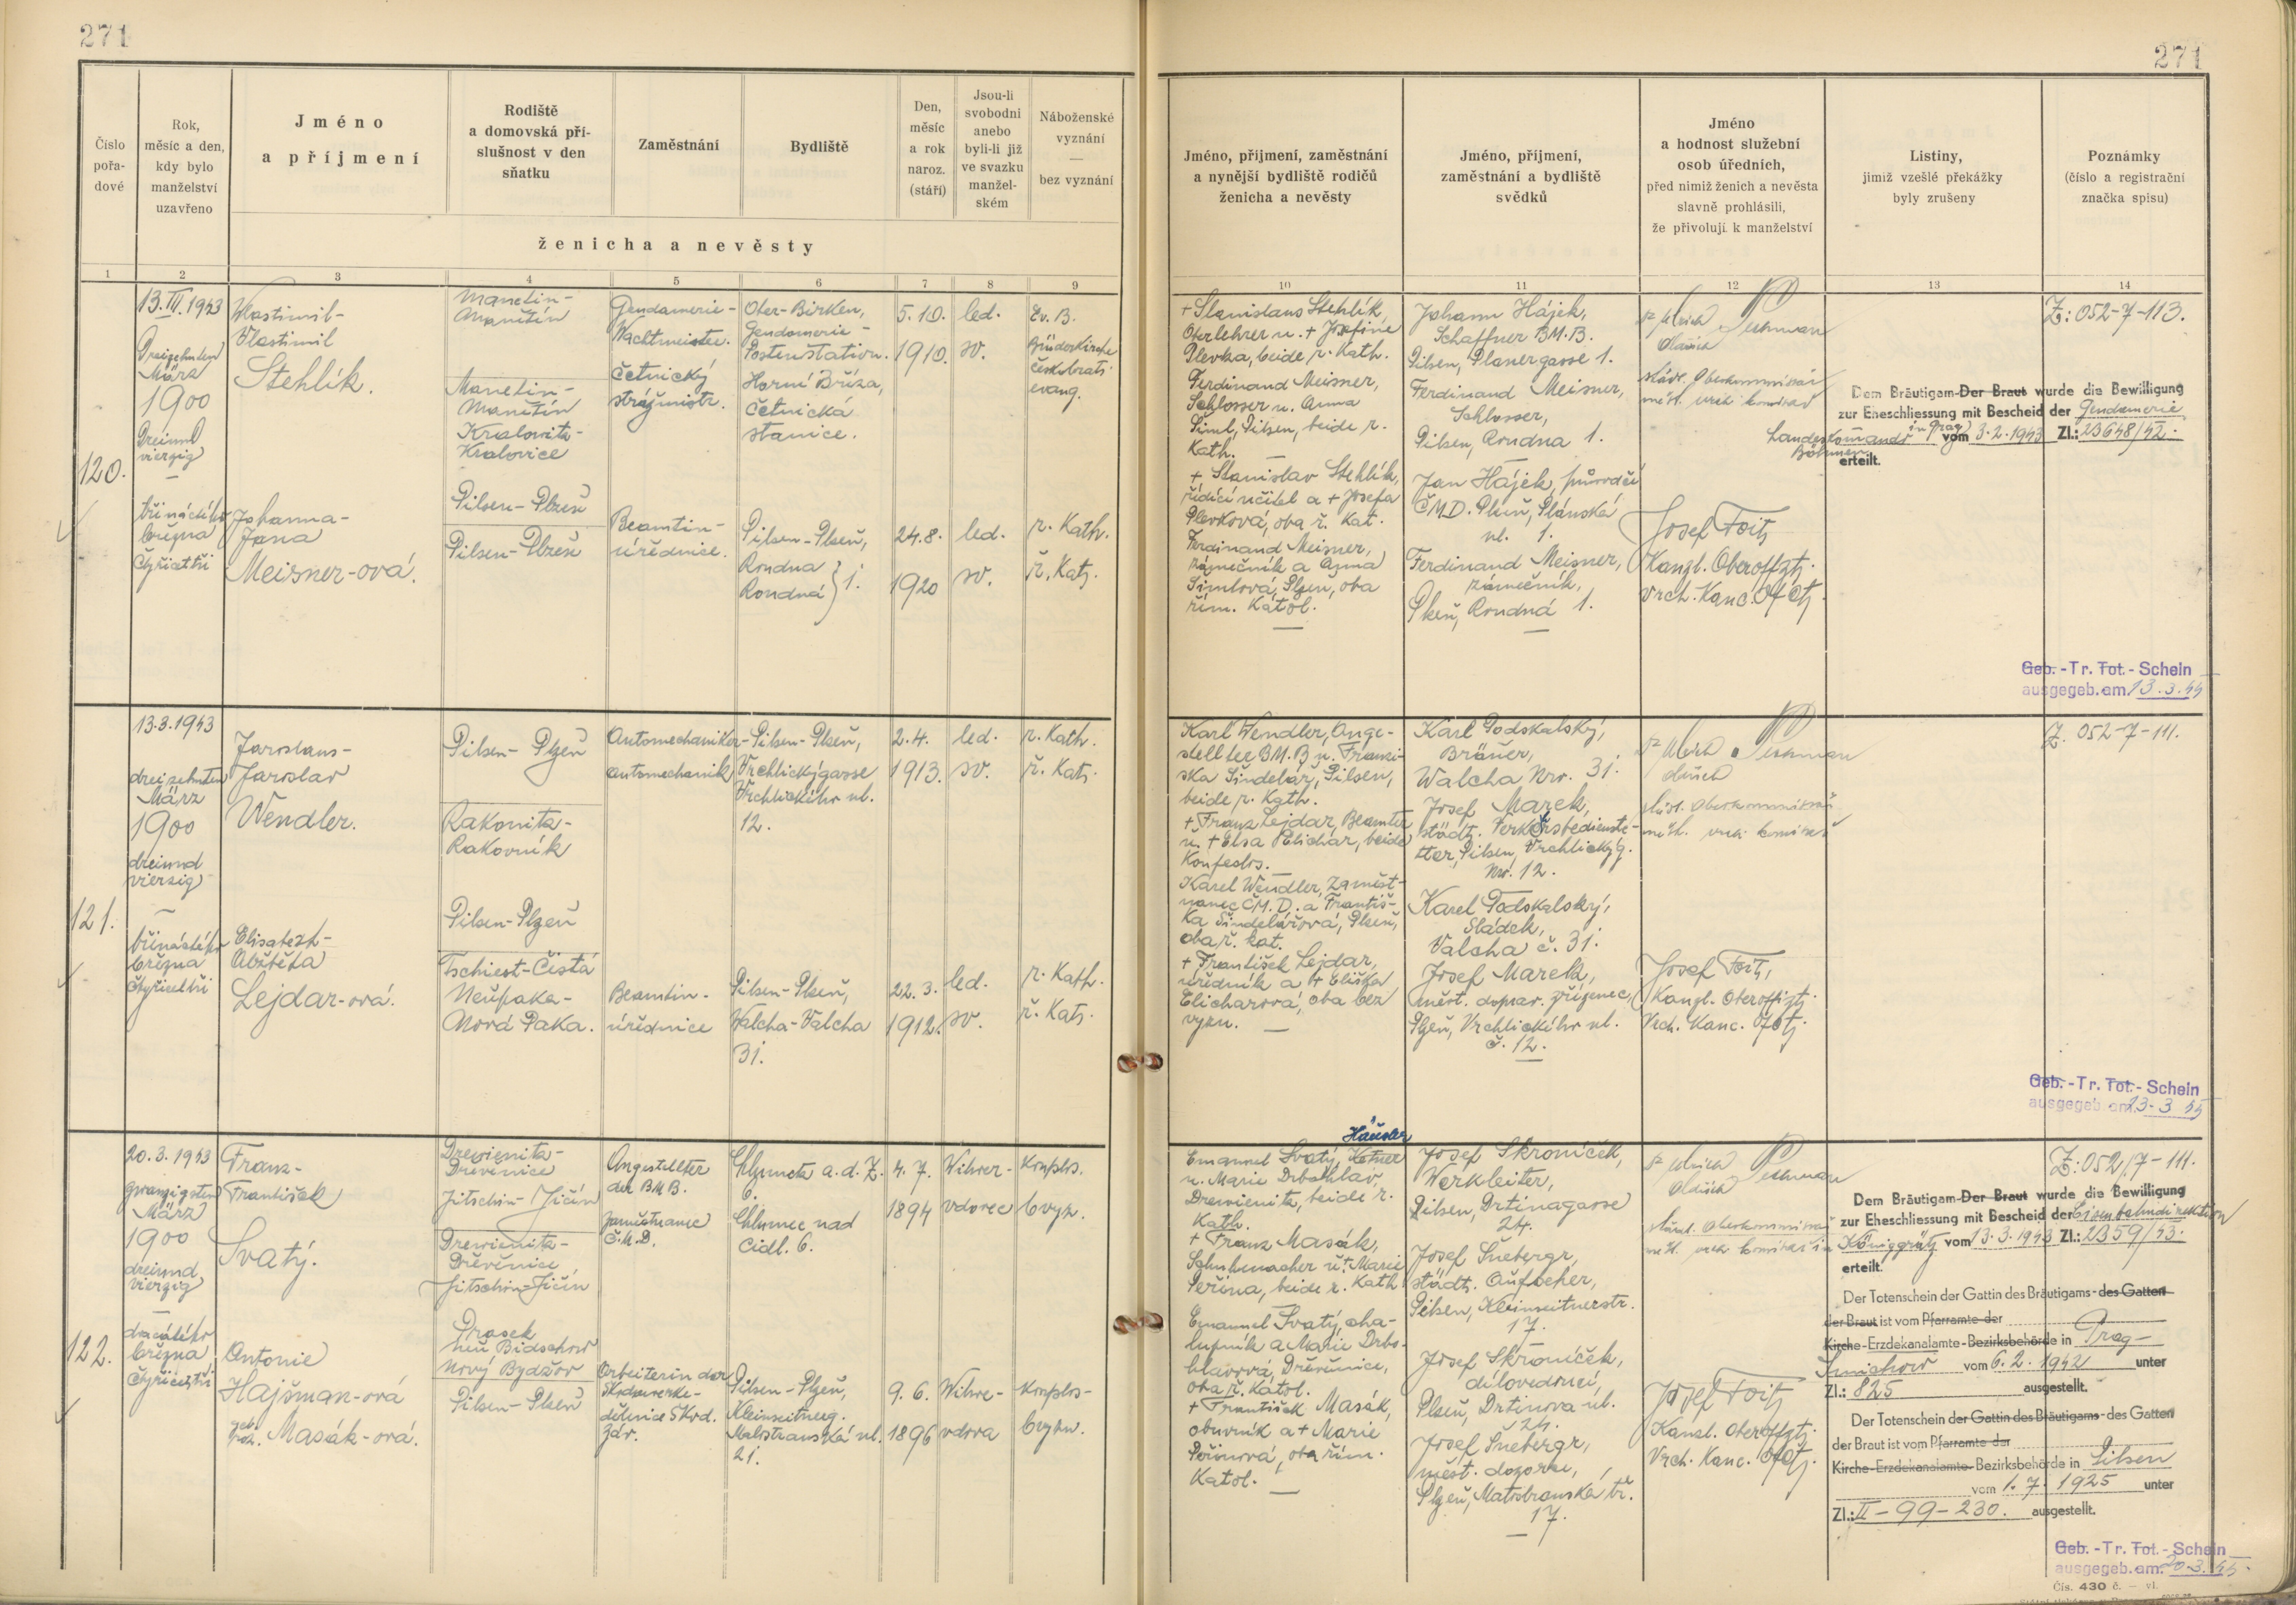 271
271
Číslo pořadové
Rok, měsíc a den, kdy bylo manželství uzavřeno
Jméno a příjmení
Rodiště a domovská příslušnost v den sňatku
Zaměstnání
Bydliště
Den, měsíc a rok naroz. (stáří)
Jsou-li svobodni anebo byli-li již ve svazku manželském
Náboženské vyznání — bez vyznání
ženicha a nevěsty
Jméno, příjmení, zaměstnání a nynější bydliště rodičů ženicha a nevěsty
Jméno, příjmení, zaměstnání a bydliště svědků
Jméno a hodnost služební osob úředních, před nimiž ženich a nevěsta slavně prohlásili, že přivolují k manželství
Listiny, jimiž vzešlé překážky byly zrušeny
Poznámky (číslo a registrační značka spisu)
1 2 3 4 5 6 7 8 9 10 11 12 13 14
120.
13. III. 1943
Dreizehnten
März
1900
Dreiund
vierzig
—
třináctého
března
čtyřicettři
Vlastimil
Stehlík.
Johanna-
Jana
Meisner-ová.
Manetin-
Manětín
Manetin-
Manětín
Kralowitz-
Kralovice
Pilsen-Plzeň
Pilsen-Plzeň
Gendarmerie-
Wachtmeister.
četnický
strážmistr.
Beamtin-
úřednice.
Ober-Birken,
Gendarmerie-
Postenstation.
Horní Bříza,
četnická
stanice.
Pilsen-Plzeň,
Roudna
Roudná } 1.
5.10.
1910.
24.8.
1920
led.
sv.
led.
sv.
Ev. B.
Brüderkirche
českobratr.
evang.
r. Kath.
ř. Kat.
+ Stanislaus Stehlík,
Oberlehrer u. + Josefine
Plevka, beide r. Kath.
Ferdinand Meisner,
Schlosser u. Anna
Siml, Pilsen, beide r.
Kath. —
+ Stanislav Stehlík,
řídící učitel a + Josefa
Plevková, oba ř. Kat.
Ferdinand Meisner,
zámečník a Anna
Simlová, Plzeň, oba
řím. Katol.
Johann Hájek,
Schaffner BM.B.
Pilsen, Planergasse 1.
Ferdinand Meisner,
Schlosser,
Pilsen, Roudna 1.
Jan Hájek, průvodčí
ČMD. Plzeň, Plánská
ul. 1.
Ferdinand Meisner,
zámečník,
Plzeň, Roudná 1.
Josef Foit,
Kanzl. Oberoffzt.
Vrch. Kanc. Ofct.
Dem Bräutigam-Der Braut wurde die Bewilligung
zur Eheschliessung mit Bescheid der Gendarmerie
Landeskommando in Prag vom 3.2.1943 Zl.: 23648/42.
Böhmen
erteilt.
Z: 052-7-113.
Geb. - Tr. Tot. - Schein
ausgegeb. am 13.3.
121.
13.3.1943
dreizehnten
März
1900
dreiund
vierzig
—
třináctého
března
čtyřicettři
Jaroslaus-
Jaroslav
Wendler.
Elisabeth-
Alžběta
Lejdar-ová.
Pilsen-Plzeň
Rakonitz-
Rakovník
Pilsen-Plzeň
Tschiest-Čistá
Neupaka-
Nová Paka.
Automechaniker-
automechanik
Beamtin-
úřednice
Pilsen-Plzeň,
Vrchlickýgasse
Vrchlického ul.
12.
Pilsen-Plzeň,
Walcha-Valcha
31.
2.4.
1913.
22.3.
1912.
led.
sv.
led.
sv.
r. Kath.
ř. Kat.
r. Kath.
ř. Kat.
Karl Wendler, Ange-
stellter BM.B u. Franzi-
ska Šindelář, Pilsen,
beide r. Kath.
+ Franz Lejdar, Beamter
u. + Elsa Elichar, beide
Konfeslos.
Karel Wendler, zaměst-
nanec ČM.D. a Františ-
ka Šindelářová, Plzeň,
oba ř. kat.
+ František Lejdar,
úředník a + Eliška
Elicharová, oba bez
vyzn. —
Karl Podskalský,
Bräuer,
Walcha Nro. 31.
Josef Marek,
städt. Verkehrsbedienste-
ter, Pilsen, Vrchlickýg.
Nro. 12.
Karel Podskalský,
Sládek,
Valcha č. 31.
Josef Marek,
měst. doprav. zřízenec,
Plzeň, Vrchlického ul.
č. 12.
Josef Foit,
Kanzl. Oberoffizt.
Vrch. Kanc. Ofct.
Z. 052-7-111.
Geb. - Tr. Tot. - Schein
ausgegeb. am 13-3
122.
20.3.1943
zwanzigsten
März
1900
dreiund
vierzig
—
dvacátého
března
čtyřicettři
Franz-
František
Svatý.
Antonie
Hajšman-ová
geb.
roz. Masák-ová.
Drewienitz-
Dřevěnice
Jitschin-Jičín
Drewienitz-
Dřevěnice
Jitschin-Jičín
Prasek
Neu Bidschow
Nový Bydžov
Pilsen-Plzeň
Angestellter
der BMB.
zaměstnanec
Č.M.D.
Arbeiterin der
Skodawerke-
dělnice Škod.
záv.
Chlumetz a.d.Z.
6.
Chlumec nad
Cidl. 6.
Pilsen-Plzeň,
Kleinseitnerg.
Malostranská ul.
21.
4.7.
1894
9.6.
1896
Witwer-
vdovec
Witwe-
vdova
konflos.
bvyz.
konflos-
bvyzn.
Häusler
Emanuel Svatý,
u. Marie Drbohlav,
Drewienitz, beide r.
Kath.
+ Franz Masák,
Schuhmacher u. + Marie
Peřina, beide r. Kath.
Emanuel Svatý, cha-
lupník a Marie Drbo-
hlavová, Dřevěnice,
oba ř. Katol.
+ František Masák,
obuvník a + Marie
Peřinová, oba řím.
Katol. —
Josef Skroníček,
Werkleiter,
Pilsen, Drtinagasse
24.
Josef Šnebergr,
städt. Aufseher,
Pilsen, Kleinseitnerstr.
17.
Josef Skroníček,
dílovedoucí,
Plzeň, Drtinova ul.
24.
Josef Šnebergr,
měst. dozorce,
Plzeň, Malostranská tř.
17.
Josef Foit,
Kanzl. Oberoffzt.
Vrch. Kanc. Ofct.
Z: 052/7-111.
Dem Bräutigam-Der Braut wurde die Bewilligung
zur Eheschliessung mit Bescheid der Eisenbahndirektion
in Königgrätz vom 13.3.1943 Zl.: 2359/43.
erteilt.
Der Totenschein der Gattin des Bräutigams-des Gatten
der Braut ist vom Pfarramte der
Kirche-Erzdekanalamte-Bezirksbehörde in Prag-
Smichow vom 6.2.1942 unter
Zl.: 825 ausgestellt.
Der Totenschein der Gattin des Bräutigams-des Gatten
der Braut ist vom Pfarramte der
Kirche-Erzdekanalamte-Bezirksbehörde in Pilsen
vom 1.7.1925 unter
Zl.: II-99-230. ausgestellt.
Geb. - Tr. Tot. - Schein
ausgegeb. am 20.3.
Čís. 430 č. — vl.